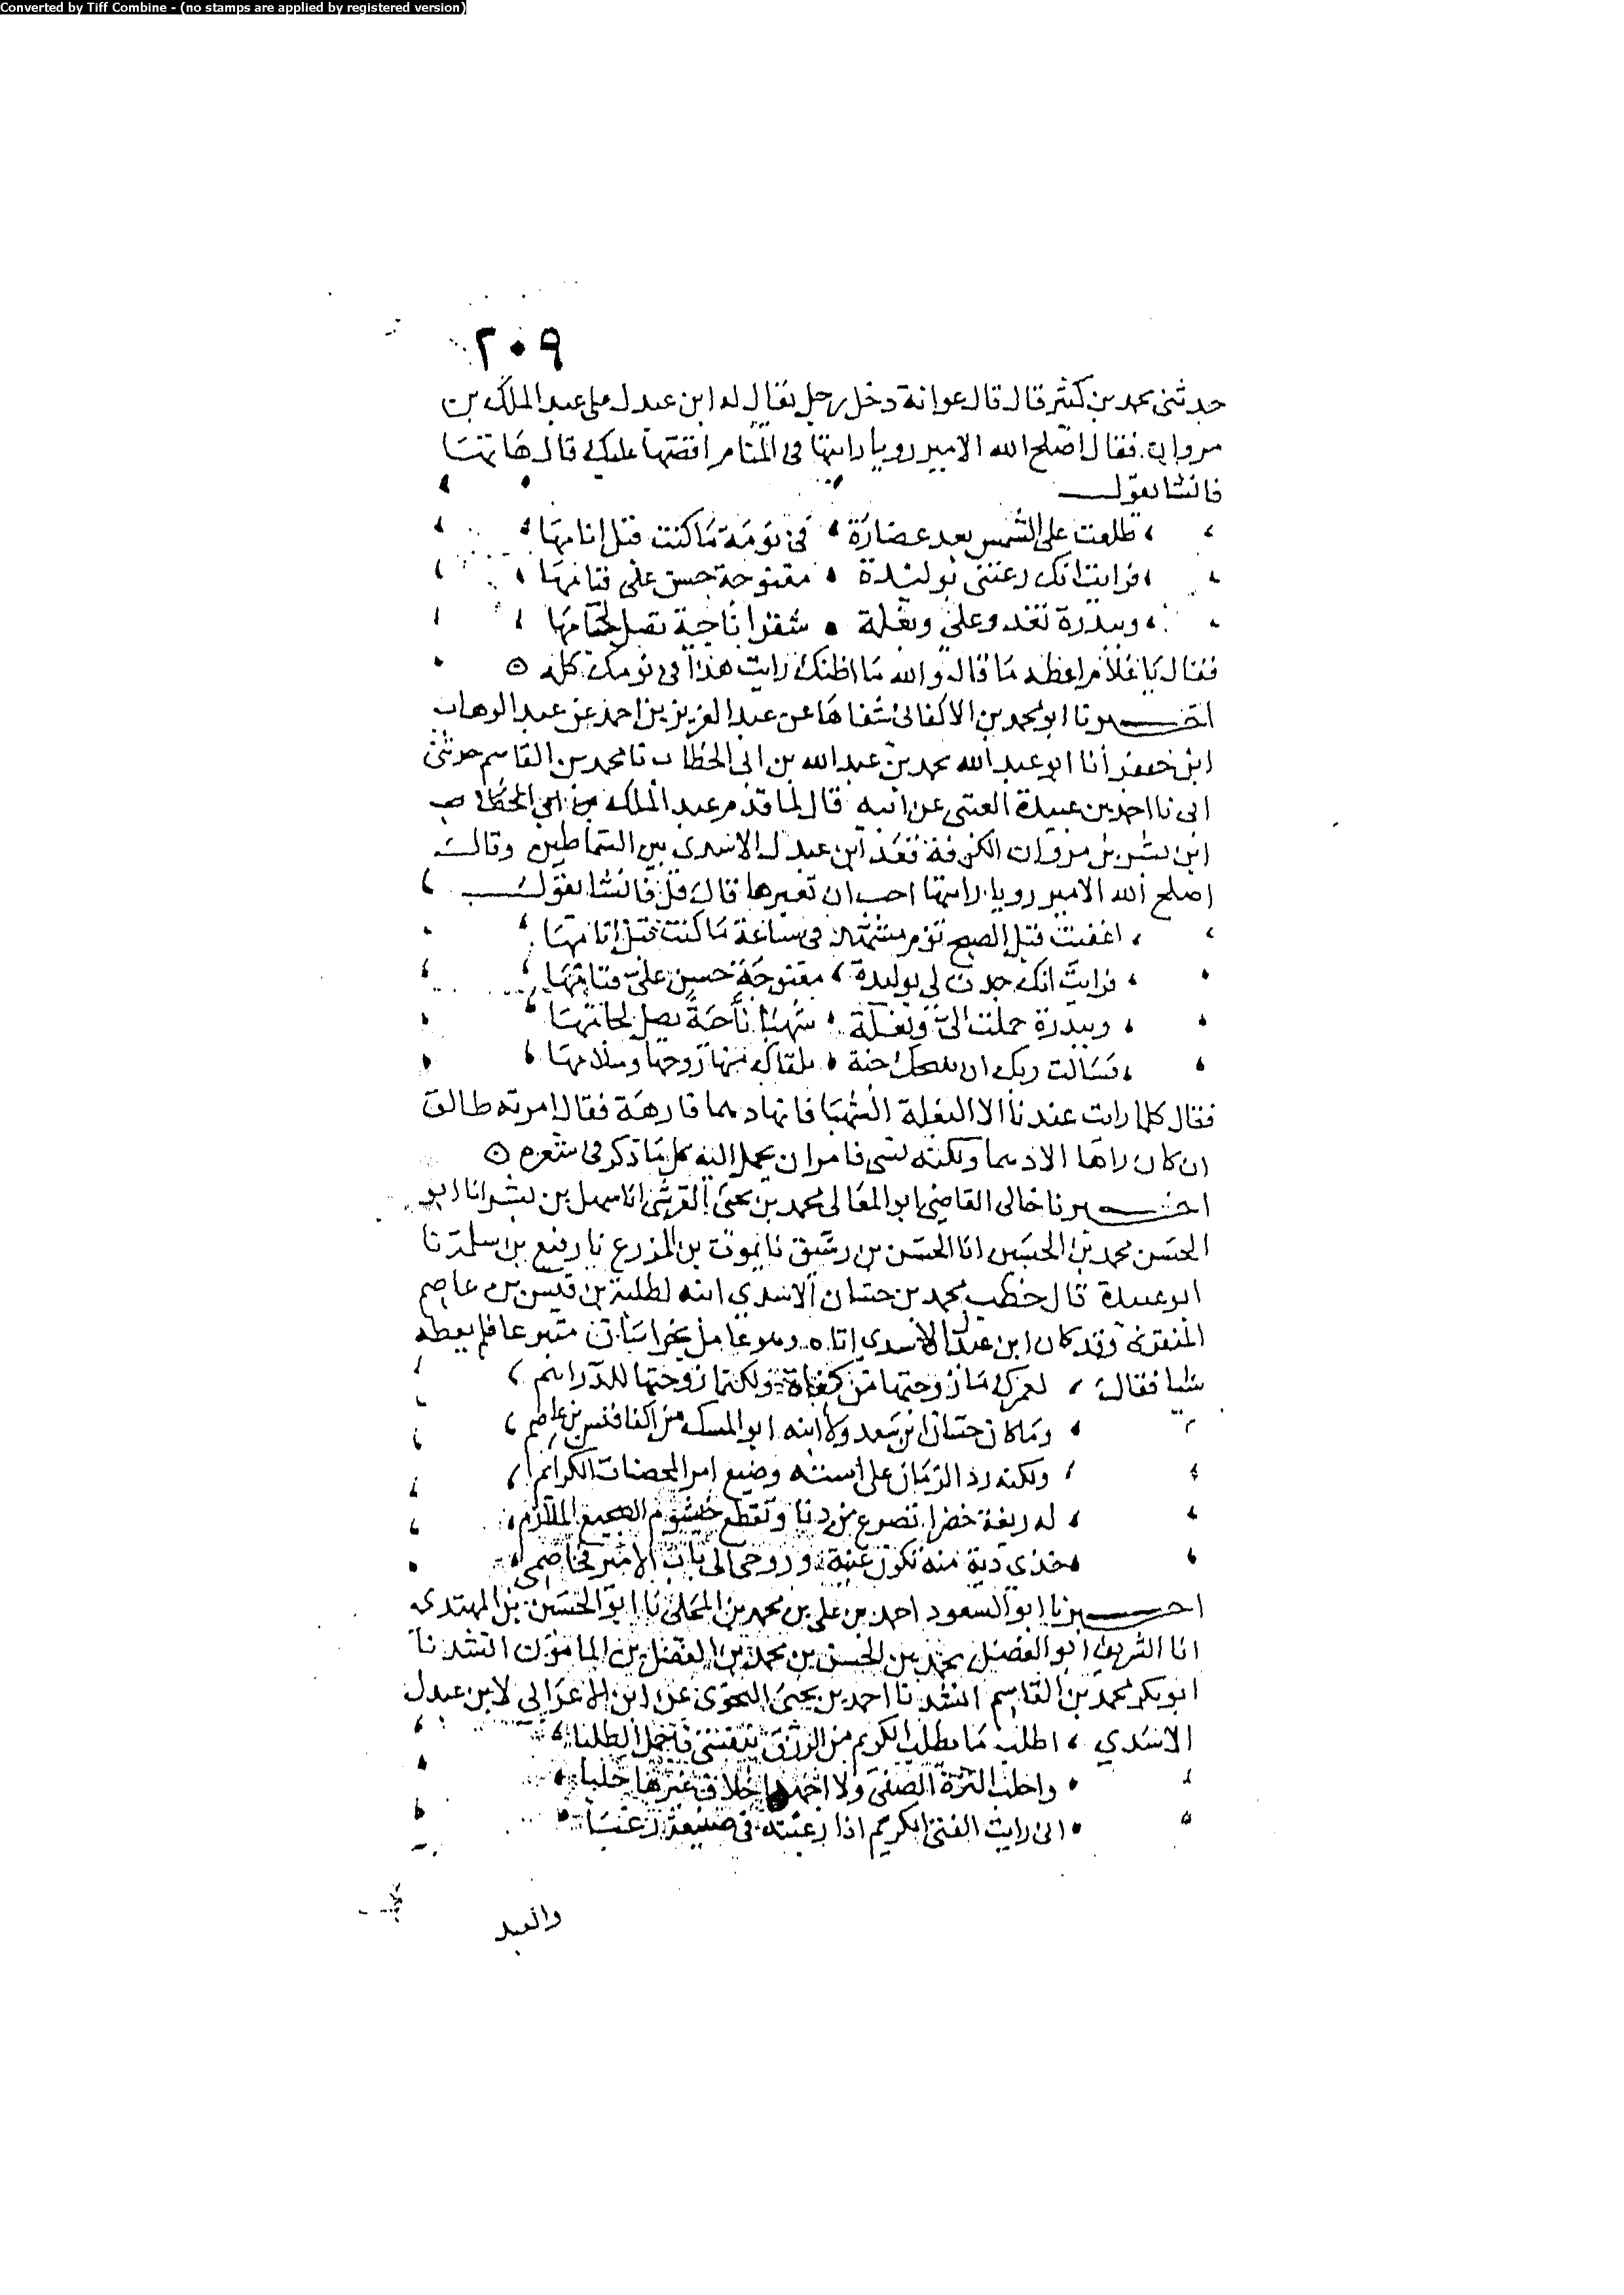 Converted by Tiff Combine - (no stamps are applied by registered version)
٢٠٩
حدثني محمد بن كثير قال قال عوانة دخل رجل يقال له ابن عبدل على عبد الملك بن
مروان فقال اصلح الله الامير رويا رايتها في المنام اقصها عليك قال هاتها
فانشا يقول
طلعت على الشمس بعد غضارة في نومة ما كنت قبل انامها
فرايت انك رعتني بوليدة مغنوجة حسن علي قيامها
وببدرة تغدو علي وبغلة شقرا ناجية يصل لجامها
فقال يا غلام اعطه ما قال والله ما اظنك رايت هذا في نومك كله
اخبرنا ابو محمد بن الاكفاني شفاها عن عبد العزيز بن احمد عن عبد الوهاب
ابن جعفر انا ابو عبد الله محمد بن عبد الله بن ابي الخطاب نا محمد بن القاسم حدثني
ابي نا احمد بن عبيدة العتبي عن ابيه قال لما قدم عبد الملك
ابن بشر بن مروان الكوفة قعد ابن عبدل الاسدي بين السماطين وقال
اصلح الله الامير رويا رايتها احب ان تعبرها قال قل فانشا يقول
اغفيت قبل الصبح نوم مسهد في ساعة ما كنت قبل انامها
فرايت انك جدت لي بوليدة مغنوجة حسن علي قيامها
وببدرة حملت الي وبغلة شهبا ناجية يصل لجامها
فسالت ربك ان جنة يلقاك منها روحها وسلامها
فقال كلما رايت عندنا الا البغلة الشهبا فانها دهما فارهة فقال امرته طالق
ان كان راها الا دهما ولكنه نسي فامر ان يحمل اليه كل ما ذكر في شعره
اخبرنا خالي القاضي ابو المعالي محمد بن يحيى القرشي انا سهل بن بشر انا ابو
الحسن محمد بن الحسين انا الحسن بن رشيق نا يموت بن المزرع نا رفيع بن سلمة نا
ابو عبيدة قال خطب محمد بن حسان الاسدي ابنه لطلبة بن قيس بن عاصم
المنقري وقد كان ابن عبدل الاسدي اتاه وهو عامل بخراسان متبرعا فلم يعطه
شيا فقال لعمرك ما زوجتها من كفاة ولكنما زوجتها للدراهم
وما كان حسان ابن سعد ولا ابنه ابو المسك من اكفا قيس بن عاصم
ولكنه رد الزمان على استه وضيع امر المحصنات الكرائم
له ريقة خضرا تصرع من دنا وتقطع خيشوم الضجيع الملازم
خذي دية منه تكون غنية وروحي الى باب الامير فخاصمي
اخبرنا ابو السعود احمد بن علي بن محمد بن المجلي نا ابو الحسين بن المهتدي
انا الشريف ابو الفضل محمد بن الحسن بن محمد بن الفضل بن المامون انشدنا
ابو بكر محمد بن القاسم انشدنا احمد بن يحيى النحوي عن ابن الاعرابي لابن عبدل
الاسدي اطلب ما يطلب الكريم من الرزق بنفسي فاجمل الطلبا
واحلب الثرة الصفي ولا اجهد اخلاف غيرها حلبا
اني رايت الفتى الكريم اذا رغبته في صنيعة رغبا
والعبد